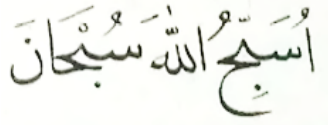 اُسَبِّحُ اللّٰهَ سُبْحَانَ